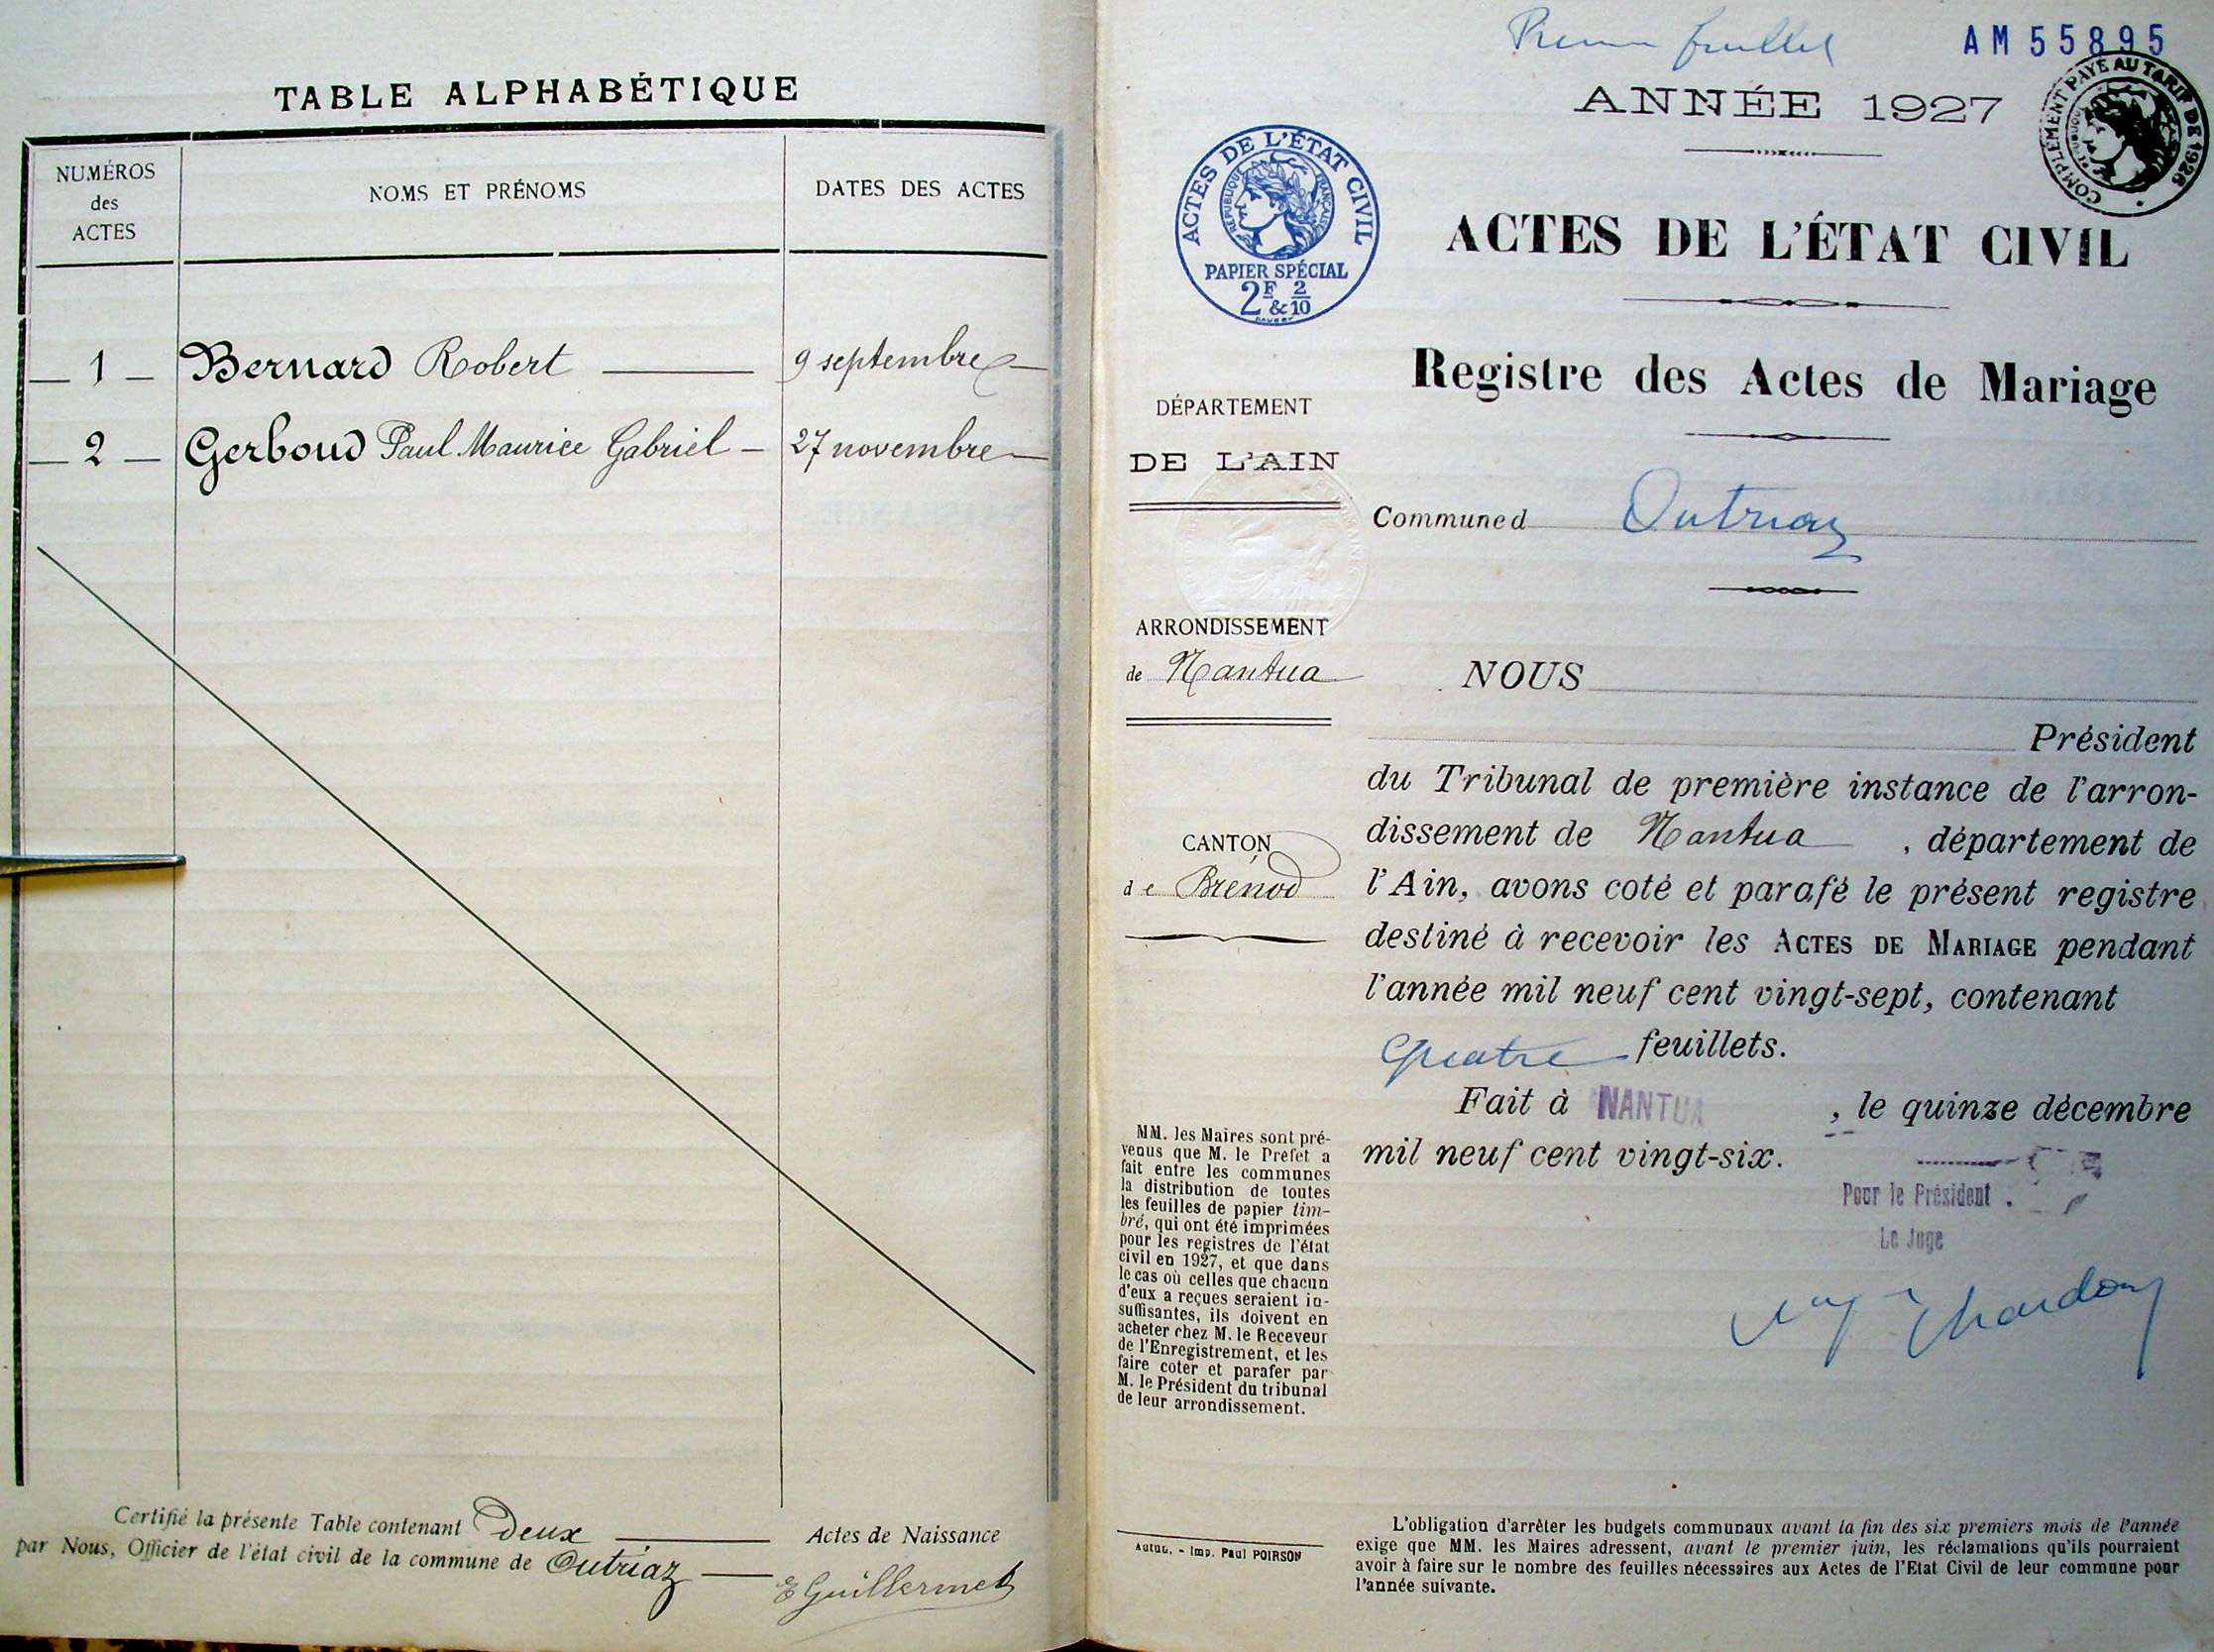 TABLE ALPHABÉTIQUE
NUMÉROS
des
ACTES
NOMS ET PRÉNOMS
DATES DES ACTES
1 Bernard Robert 9 septembre
2 Gerboud Paul Maurice Gabriel 27 novembre
Certifié la présente Table contenant Deux Actes de Naissance
par Nous, Officier de l'état civil de la commune de Outriaz
E Guillermet
feuillet
AM 55895
COMPLÉMENT PAYÉ AU TARIF DE 1926
ANNÉE 1927
ACTES DE L'ÉTAT CIVIL
RÉPUBLIQUE FRANÇAISE
PAPIER SPÉCIAL
2F & 2/10
ACTES DE L'ÉTAT CIVIL
Registre des Actes de Mariage
DÉPARTEMENT
DE L'AIN
Commune d Outriaz
ARRONDISSEMENT
de Nantua
CANTON
de Brénod
NOUS
Président
du Tribunal de première instance de l'arron-
dissement de Nantua , département de
l'Ain, avons coté et parafé le présent registre
destiné à recevoir les ACTES DE MARIAGE pendant
l'année mil neuf cent vingt-sept, contenant
Quatre feuillets.
Fait à NANTUA , le quinze décembre
mil neuf cent vingt-six.
Pour le Président
Le Juge
Chardon
MM. les Maires sont pré-
venus que M. le Préfet a
fait entre les communes
la distribution de toutes
les feuilles de papier tim-
bré, qui ont été imprimées
pour les registres de l'état
civil en 1927, et que dans
le cas où celles que chacun
d'eux a reçues seraient in-
suffisantes, ils doivent en
acheter chez M. le Receveur
de l'Enregistrement, et les
faire coter et parafer par
M. le Président du tribunal
de leur arrondissement.
Autun. - Imp. Paul POIRSON
L'obligation d'arrêter les budgets communaux avant la fin des six premiers mois de l'année
exige que MM. les Maires adressent, avant le premier juin, les réclamations qu'ils pourraient
avoir à faire sur le nombre des feuilles nécessaires aux Actes de l'Etat Civil de leur commune pour
l'année suivante.